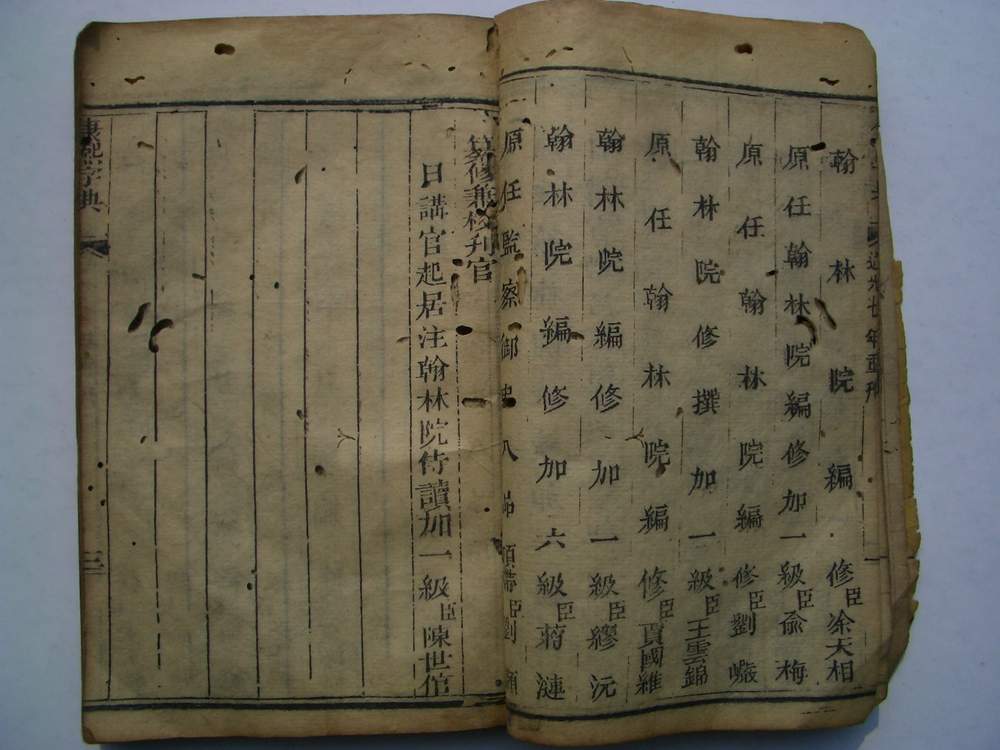 道光七年重刊
翰林院編修臣涂天相
原任翰林院編修加一級臣俞梅
原任翰林院編修臣劉巖
翰林院修撰加一級臣王雲錦
原任翰林院編修臣賈國維
翰林院編修加一級臣繆沅
翰林院編修加六級臣蔣漣
原任監察御史八品頂帶臣劉
纂修兼校刊官
日講官起居注翰林院侍讀加一級臣陳世倌
康熙字典
三